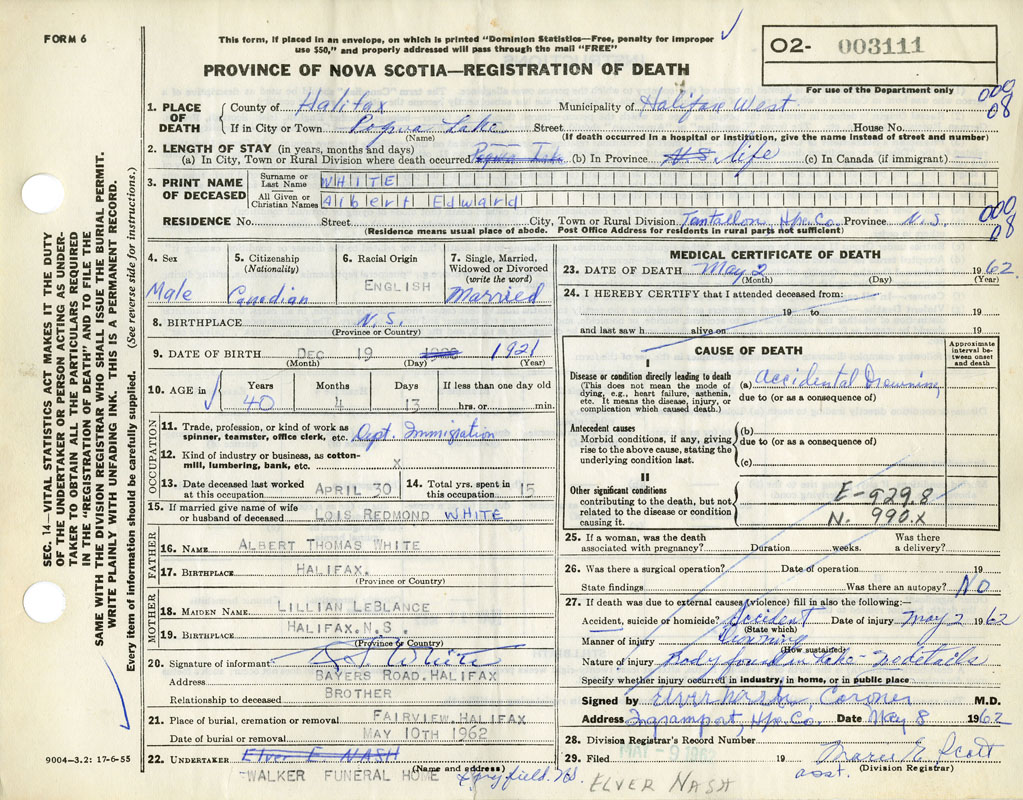 FORM 6
This form, if placed in an envelope, on which is printed "Dominion Statistics—Free, penalty for improper use $50," and properly addressed will pass through the mail "FREE"
PROVINCE OF NOVA SCOTIA—REGISTRATION OF DEATH
O2- 003111
For use of the Department only
000
08
1. PLACE OF DEATH
County of Halifax Municipality of Halifax West
If in City or Town Lake Street House No.
(Name) (If death occurred in a hospital or institution, give the name instead of street and number)
2. LENGTH OF STAY (in years, months and days)
(a) In City, Town or Rural Division where death occurred (b) In Province N.S. life (c) In Canada (if immigrant)
3. PRINT NAME OF DECEASED
Surname or Last Name WHITE
All Given or Christian Names Albert Edward
RESIDENCE No. Street City, Town or Rural Division Tantallon, Hfx. Co. Province N.S.
(Residence means usual place of abode. Post Office Address for residents in rural parts not sufficient)
000
08
4. Sex
Male
5. Citizenship (Nationality)
Canadian
6. Racial Origin
ENGLISH
7. Single, Married, Widowed or Divorced (write the word)
Married
8. BIRTHPLACE N.S.
(Province or Country)
9. DATE OF BIRTH DEC 19 1921
(Month) (Day) (Year)
10. AGE in Years Months Days If less than one day old
40 4 13 hrs. or min.
OCCUPATION
11. Trade, profession, or kind of work as spinner, teamster, office clerk, etc. Dept. Immigration
12. Kind of industry or business, as cotton-mill, lumbering, bank, etc. X
13. Date deceased last worked at this occupation APRIL 30
14. Total yrs. spent in this occupation 15
15. If married give name of wife or husband of deceased LOIS REDMOND WHITE
FATHER
16. NAME ALBERT THOMAS WHITE
17. BIRTHPLACE HALIFAX.
(Province or Country)
MOTHER
18. MAIDEN NAME LILLIAN LEBLANCE
19. BIRTHPLACE HALIFAX.N.S.
(Province or Country)
20. Signature of informant White
Address BAYERS ROAD.HALIFAX
Relationship to deceased BROTHER
21. Place of burial, cremation or removal FAIRVIEW.HALIFAX
Date of burial or removal MAY 10TH 1962
22. UNDERTAKER Elver E. NASH
(Name and address)
WALKER FUNERAL HOME Spryfield. NS.
ELVER NASH
MEDICAL CERTIFICATE OF DEATH
23. DATE OF DEATH May 2 1962.
(Month) (Day) (Year)
24. I HEREBY CERTIFY that I attended deceased from:
19 to 19
and last saw h alive on 19
CAUSE OF DEATH
Approximate interval between onset and death
I
Disease or condition directly leading to death
(This does not mean the mode of dying, e.g., heart failure, asthenia, etc. It means the disease, injury, or complication which caused death.)
(a) Accidental Drowning
due to (or as a consequence of)
Antecedent causes
Morbid conditions, if any, giving rise to the above cause, stating the underlying condition last.
(b)
due to (or as a consequence of)
(c)
II
Other significant conditions
contributing to the death, but not related to the disease or condition causing it.
E-929.8
N. 990.x
25. If a woman, was the death associated with pregnancy? Duration weeks. Was there a delivery?
26. Was there a surgical operation? Date of operation 19
State findings Was there an autopsy? No
27. If death was due to external causes (violence) fill in also the following:—
Accident, suicide or homicide? Accident Date of injury May 2 1962
(State which)
Manner of injury
(How sustained)
Nature of injury Body found in lake - no details
Specify whether injury occurred in industry, in home, or in public place
Signed by Elver Nash, Coroner M.D.
Address Ingramport, Hfx. Co. Date May 8 1962
28. Division Registrar's Record Number
29. Filed 19 Marie E. Scott
asst. (Division Registrar)
SEC. 14—VITAL STATISTICS ACT MAKES IT THE DUTY OF THE UNDERTAKER OR PERSON ACTING AS UNDERTAKER TO OBTAIN ALL THE PARTICULARS REQUIRED IN THE "REGISTRATION OF DEATH" AND TO FILE THE SAME WITH THE DIVISION REGISTRAR WHO SHALL ISSUE THE BURIAL PERMIT.
WRITE PLAINLY WITH UNFADING INK. THIS IS A PERMANENT RECORD.
Every item of information should be carefully supplied. (See reverse side for instructions.)
9004—3.2: 17-6-55